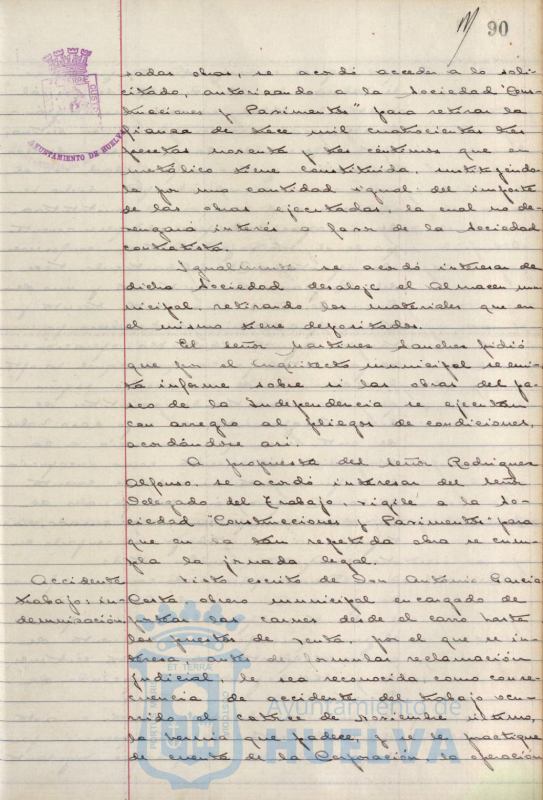 90
AYUNTAMIENTO DE HUELVA
sadas obras, se acordó acceder a lo soli-
citado, autorizando a la Sociedad "Cons-
trucciones y Pavimentos" para retirar la
fianza de trece mil cuatrocientas tres
pesetas noventa y tres céntimos que en
metálico tiene constituida, sustituyéndo-
la por una cantidad igual del importe
de las obras ejecutadas, la cual no de-
vengará interés a favor de la Sociedad
contratista.
Igualmente se acordó interesar de
dicha Sociedad desaloje el Almacen mu-
nicipal, retirando los materiales que en
el mismo tiene depositados.
El señor Martinez Sanchez pidió
que por el Arquitecto municipal se emi-
ta informe sobre si las obras del pa-
seo de la Independencia se ejecutan
con arreglo al pliego de condiciones,
acordándose asi.
A propuesta del señor Rodriguez
Alfonso, se acordó interesar del señor
Delegado del Trabajo, vigile a la So-
ciedad "Construcciones y Pavimentos" para
que en la tan repetida obra se cum-
pla la jornada legal.
Accidente
trabajo: in-
demnización.
Visto escrito de Don Antonio Garcia
Costa obrero municipal encargado de
portar las carnes desde el carro hasta
los puestos de venta, por el que se in-
teresa, antes de formular reclamación
judicial le sea reconocida, como conse-
cuencia de accidente del trabajo ocu-
rrido el catorce de noviembre último,
la hernia que padece, y se le practique
de cuenta de la Corporación la operación
Ayuntamiento de
HUELVA